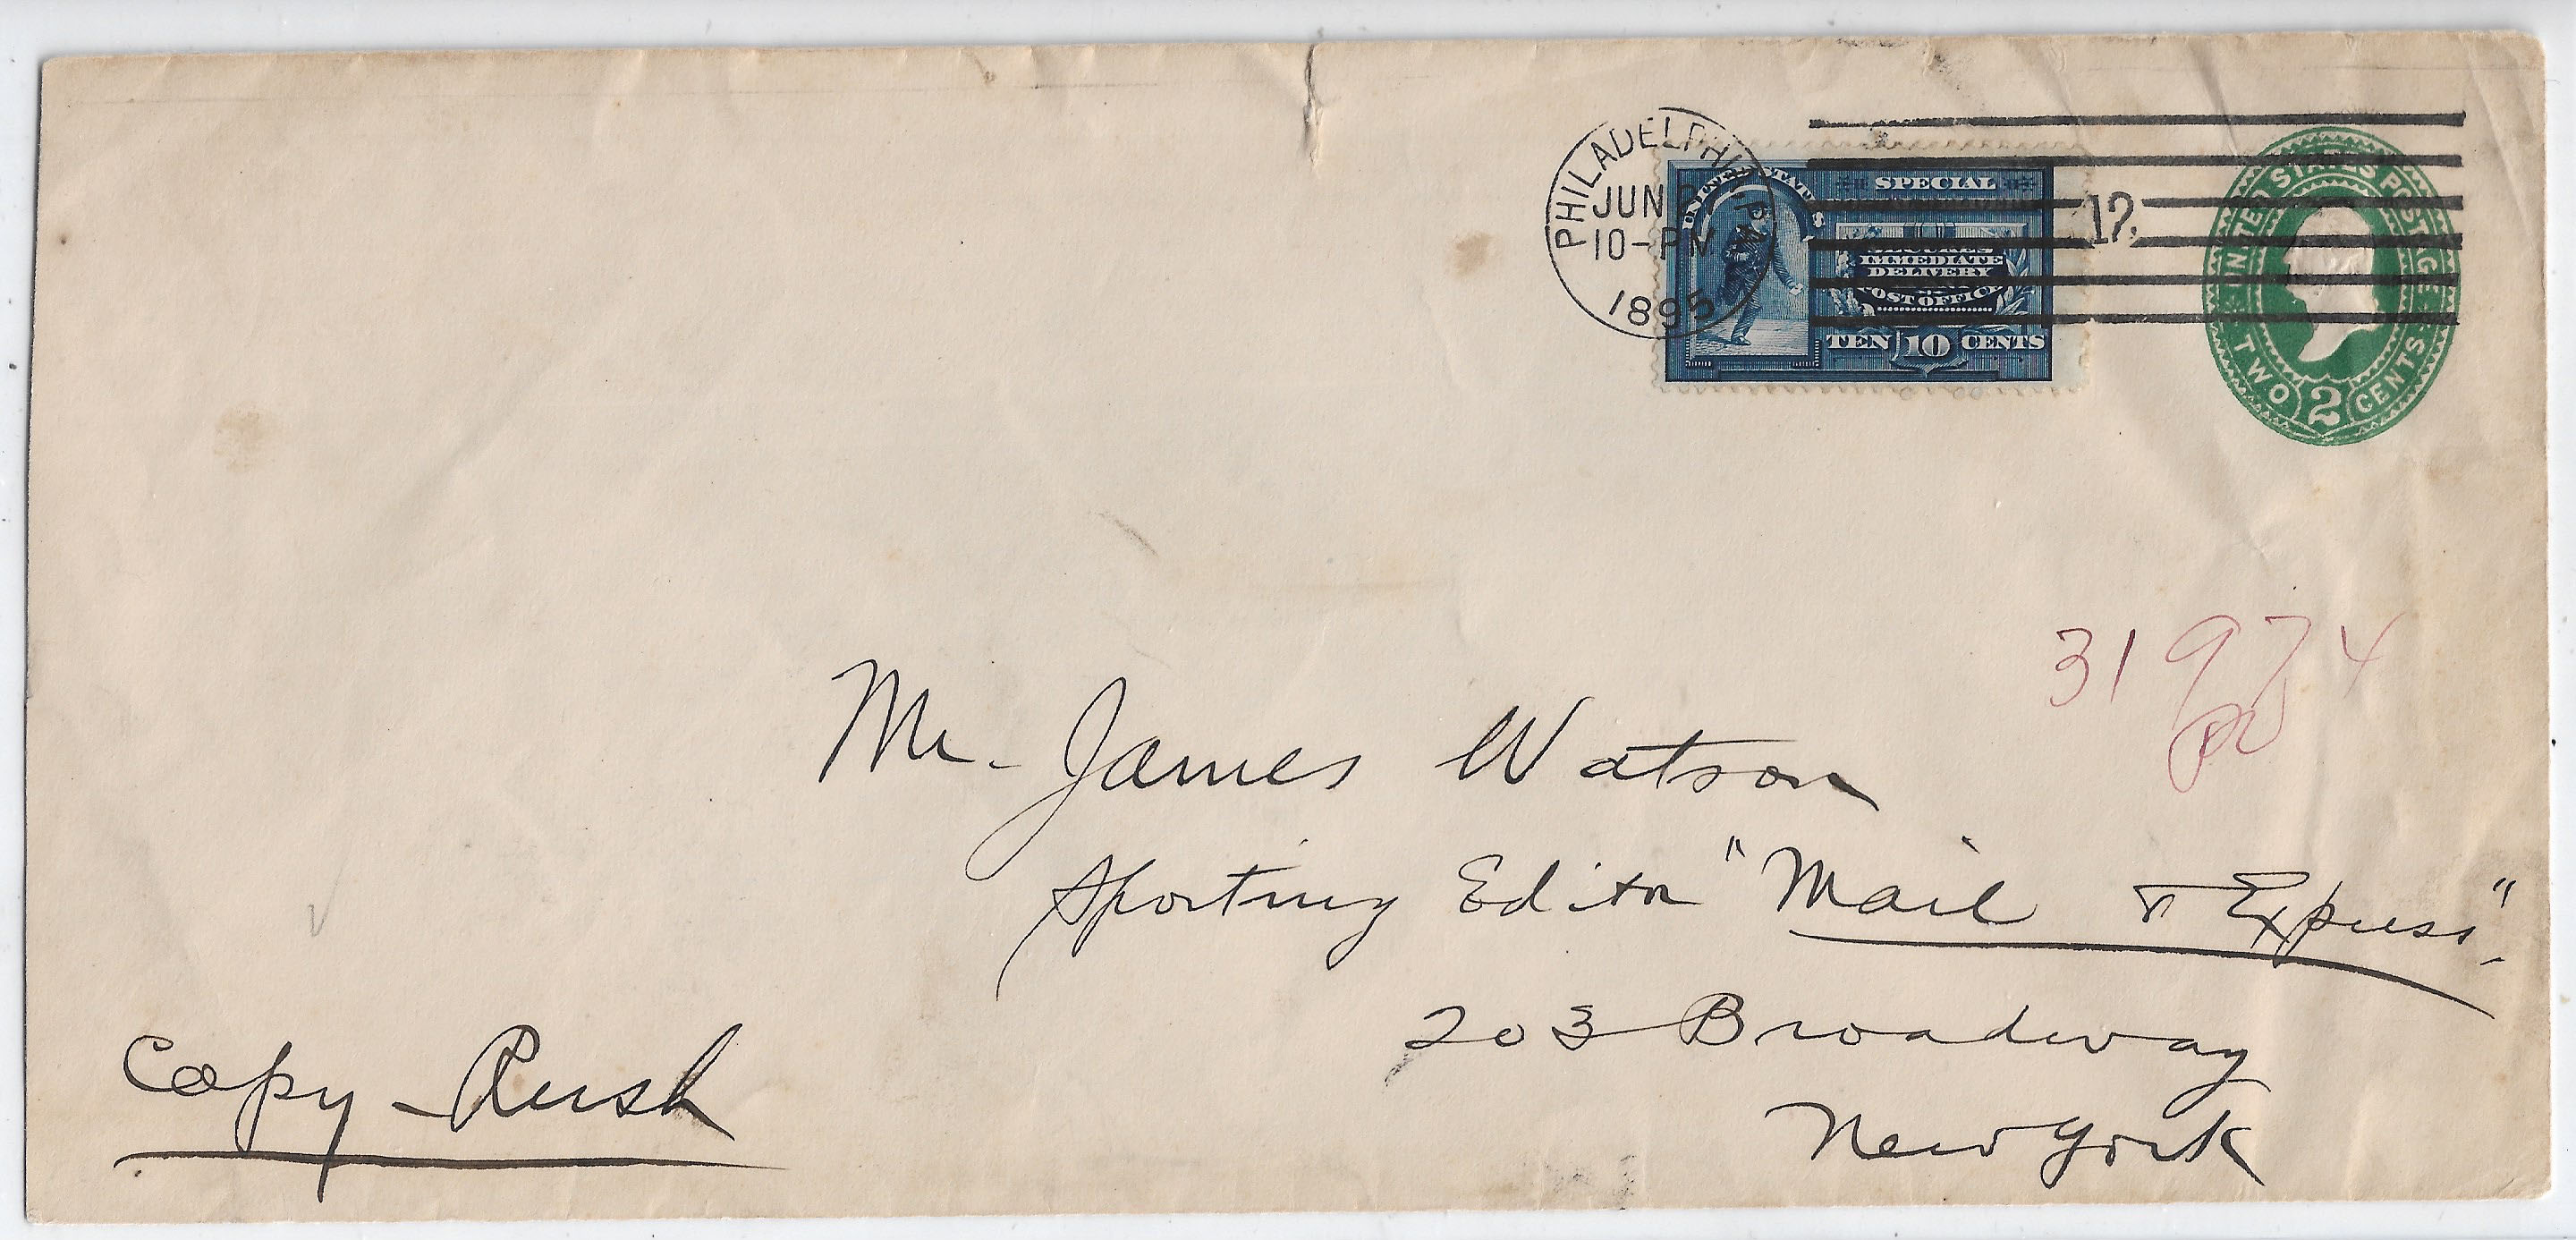 PHILADELPHIA, PA.
JUN
10-PM
1895
12
UNITED STATES
SPECIAL
IMMEDIATE
DELIVERY
POST OFFICE
TEN 10 CENTS
UNITED STATES POSTAGE
TWO 2 CENTS
31974
Mr. James Watson
Sporting Editor "Mail & Express".
203 Broadway
New York
Copy - Rush